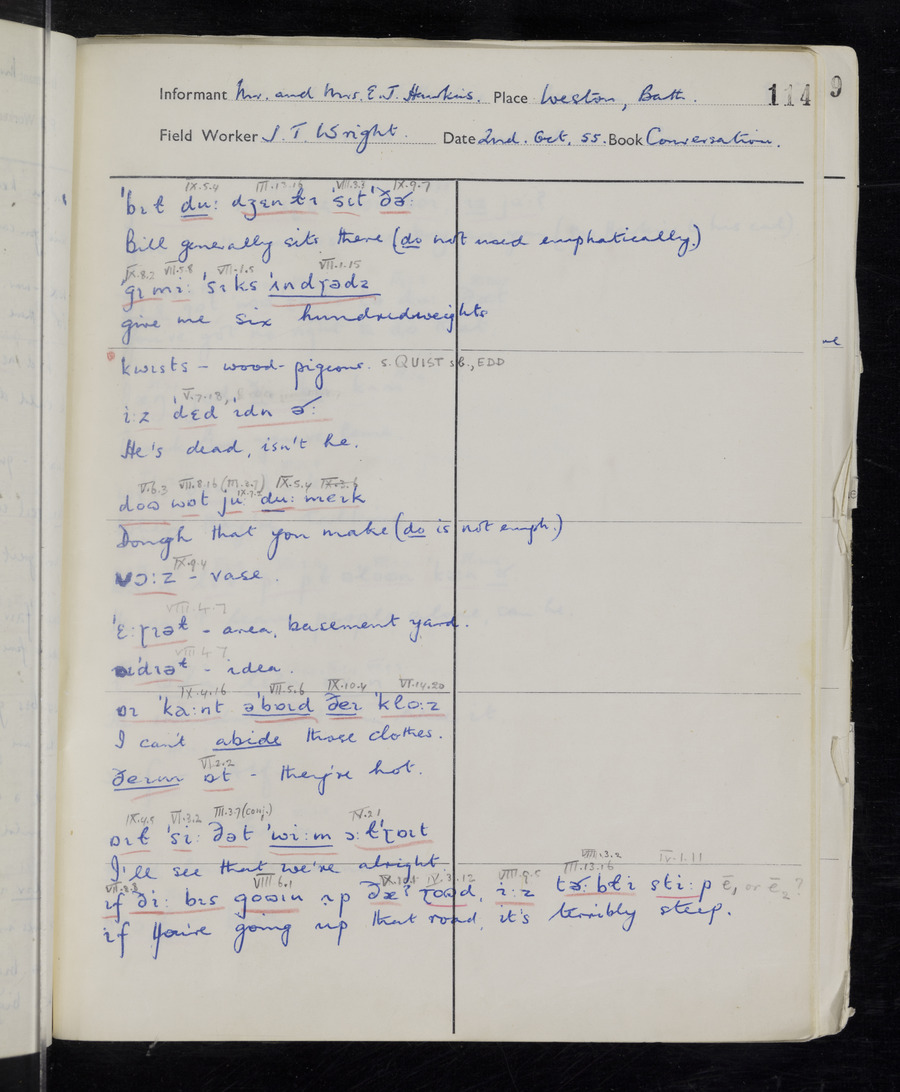 Informant Mr. and Mrs. E. J. Hawkins. Place Weston, Bath. 114 9
Field Worker J. T. Wright. Date 2nd. Oct, 55. Book Conversation.
IX.5.4 IX.9.7
'bɪɫ du: 'sɪt 'ðɚ:
Bill generally sits there (do not used emphatically.)
IX.8.2 VII.5.8 VII.1.5 VII.1.15
gɪ mi: 'sɪks
give me six hundredweights
kwɪsts – wood-pigeons. s. QUIST sb., EDD
V.7.18,
i:z 'dɛd 'ɪdn ɚ:
He's dead, isn't he.
V.6.3 VII.8.16 (III.3.7) IX.5.4 IX.3.6
wɒt ju: du: meɪk
Dough that you make (do is not emph.)
IX.9.4
vɔ:z – vase.
VIII.4.7
– area, basement yard.
VIII 4 7
– idea.
IX.4.16 VII.5.6 IX.10.4 VI.14.20
ɒɪ 'ka:nt ə'bɒɪd ðeɪ 'klɔ:z
I can't abide those clothes.
VI.2.2
ðeɪm ɒt – they're hot.
IX.4.5 VI.3.2 III.3.7 (conj.) IV.21
ɒɪɫ 'si: ðət 'wi:m
I'll see that we're alright
VIII.3.2 IV.1.11
VIII 6.1 III.13.16
if ði: bɪs gooɪn ɪ:z stɪ:p ē₁ or ē₂?
if you're going up that road, it's terribly steep.